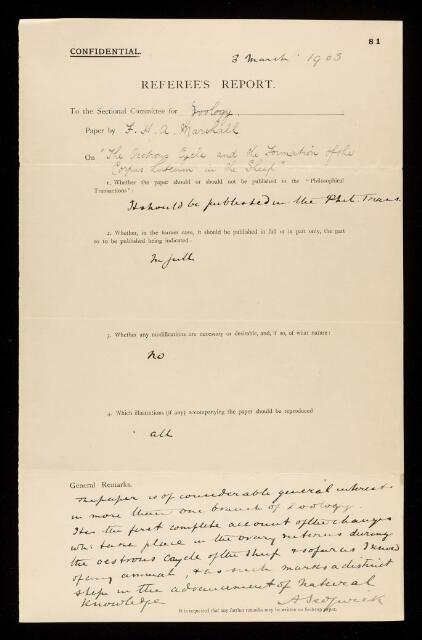 81
CONFIDENTIAL.
3 March 1903
REFEREE'S REPORT.
To the Sectional Committee for Zoology.
Paper by F. H. A. Marshall
On "The Oestrous Cycle and the Formation of the
Corpus Luteum in the Sheep"
1. Whether the paper should or should not be published in the "Philosophical
Transactions":
It should be published in the Phil. Trans.
2. Whether, in the former case, it should be published in full or in part only, the part
so to be published being indicated:
In full
3. Whether any modifications are necessary or desirable, and, if so, of what nature:
No
4. Which illustrations (if any) accompanying the paper should be reproduced
all
General Remarks.
The paper is of considerable general interest
in more than one branch of Zoology.
It is the first complete account of the changes
wh: take place in the ovary & uterus during
the oestrous cycle of the sheep & so far as I know
of any animal, & as such marks a distinct
step in the advancement of natural
knowledge
A Sedgwick
It is requested that any further remarks may be written on foolscap paper.